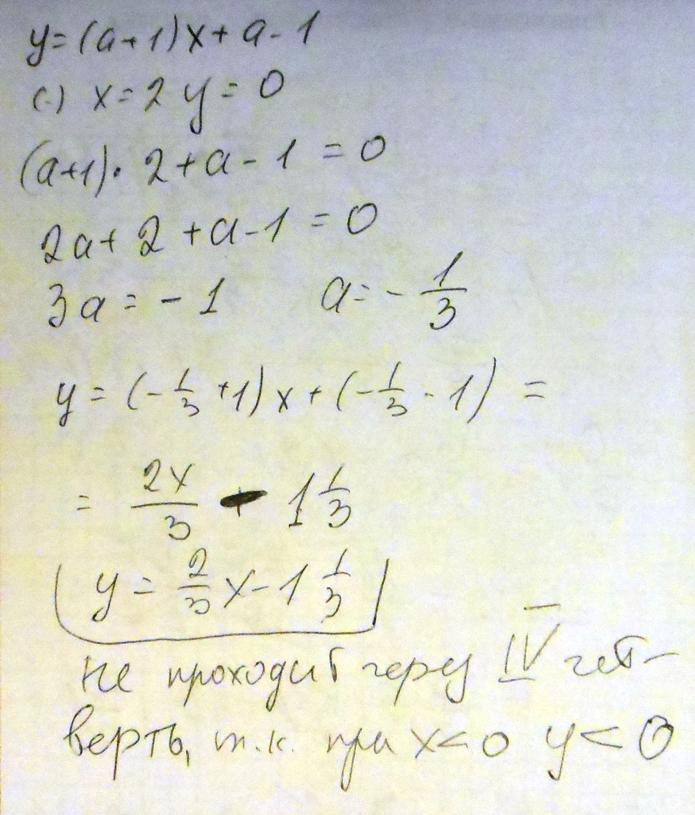 y=(a+1)x+a-1
(·) x=2 y=0
(a+1)·2+a-1=0
2a+2+a-1=0
3a=-1 a=-1/3
y=(-1/3+1)x+(-1/3-1)=
=2x/3 - 1 1/3
y=2/3x-1 1/3
не проходит через IV чет-
верть, т.к. при x<0 y<0